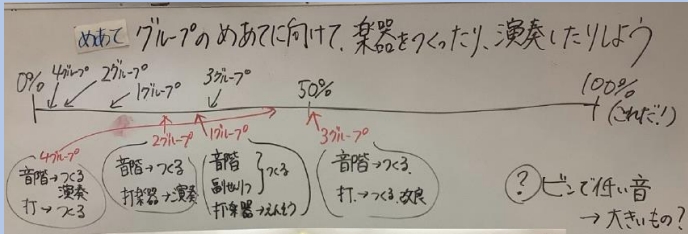 めあて グループのめあてに向けて、楽器をつくったり、演奏したりしよう
0% 4グループ 2グループ 1グループ 3グループ 50% 100%
(これだ!)
4グループ 2グループ 1グループ 3グループ
音階→つくる
演奏
打→つくる
音階→つくる
打楽器→演奏
音階
副せりつ
つくる
打楽器→えんそう
音階→つくる、
打→つくる、改良
? ビンで低い音
→大きいもの?